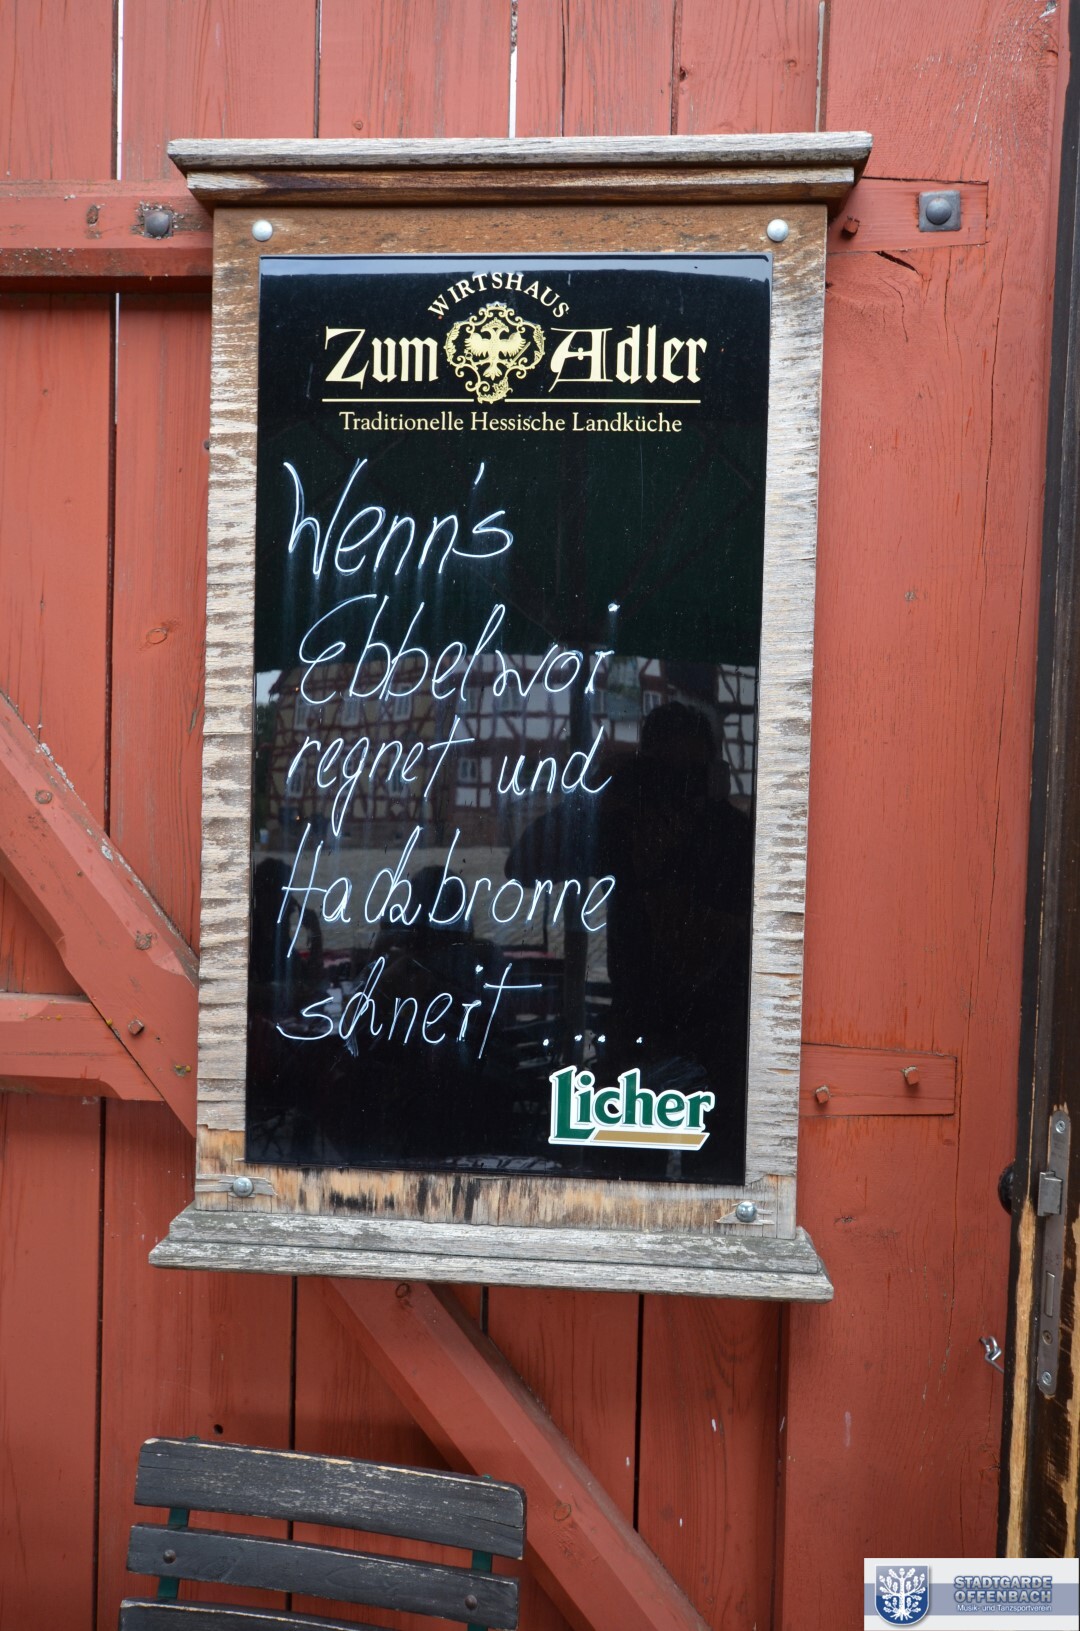 WIRTSHAUS
Zum Adler
Traditionelle Hessische Landküche
Wenn's
Ebbelwoi
regnet und
Hadzbrorre
schneit ....
Licher
STADTGARDE
OFFENBACH
Musik- und Tanzsportverein